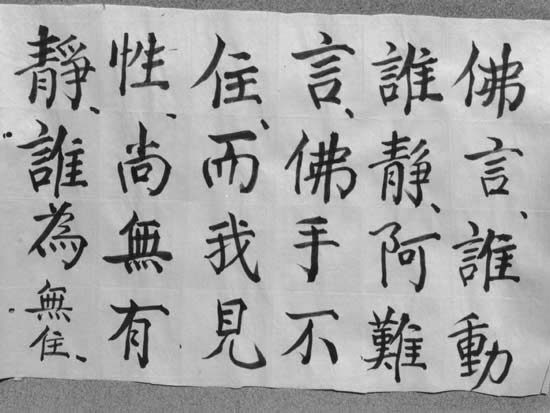 佛言、誰動
誰靜、阿難
言、佛手不
住、而我見
性、尚無有
靜、誰為無住、